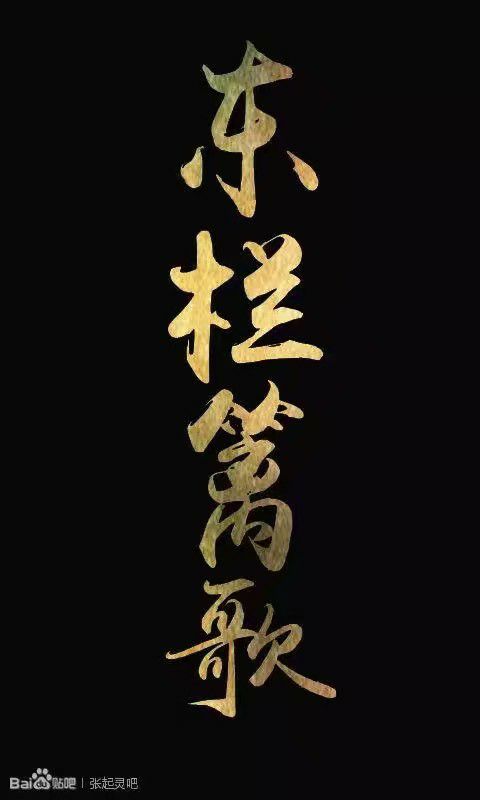 东栏篱歌
Bai贴吧 | 张起灵吧